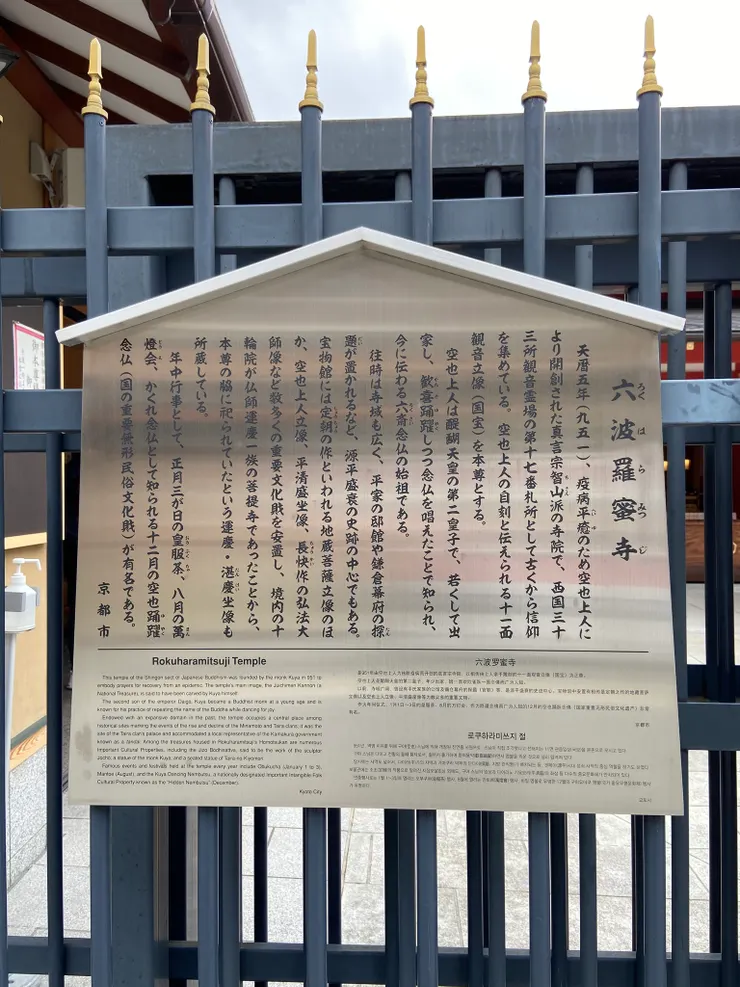 六波羅蜜寺
天暦五年（九五一）、疫病平癒のため空也上人に
より開創された真言宗智山派の寺院で、西国三十
三所観音霊場の第十七番札所として古くから信仰
を集めている。空也上人の自刻と伝えられる十一面
観音立像（国宝）を本尊とする。
空也上人は醍醐天皇の第二皇子で、若くして出
家し、歓喜踊躍しつつ念仏を唱えたことで知られ、
今に伝わる六斎念仏の始祖である。
往時は寺域も広く、平家の邸館や鎌倉幕府の探
題が置かれるなど、源平盛衰の史跡の中心でもある。
宝物館には定朝の作といわれる地蔵菩薩立像のほ
か、空也上人立像、平清盛坐像、長快作の弘法大
師像など数多くの重要文化財を安置し、境内の十
輪院が仏師運慶一族の菩提寺であったことから、
本尊の脇に祀られていたという運慶・湛慶坐像も
所蔵している。
年中行事として、正月三が日の皇服茶、八月の萬
燈会、かくれ念仏として知られる十二月の空也踊躍
念仏（国の重要無形民俗文化財）が有名である。
京都市
Rokuharamitsuji Temple
This temple of the Shingon sect of Japanese Buddhism was founded by the monk Kuya in 951 to
embody prayers for recovery from an epidemic. The temple's main image, the Juichimen Kannon (a
National Treasure), is said to have been carved by Kuya himself.
The second son of the emperor Daigo, Kuya became a Buddhist monk at a young age and is
known for his practice of repeating the name of the Buddha while dancing for joy.
Endowed with an expansive domain in the past, the temple occupied a central place among
historical sites marking the events of the rise and decline of the Minamoto and Taira clans; it was the
site of the Taira clan's palace and accommodated a local representative of the Kamakura government
known as a tandai. Among the treasures housed in Rokuharamitsuji's Homotsukan are numerous
Important Cultural Properties, including the Jizo Bodhisattva, said to be the work of the sculptor
Jocho, a statue of the monk Kuya, and a seated statue of Taira no Kiyomori.
Famous events and festivals held at the temple every year include Obukucha (January 1 to 3),
Mantoe (August), and the Kuya Dancing Nembutsu, a nationally designated Important Intangible Folk
Cultural Property known as the "Hidden Nembutsu" (December).
Kyoto City
六波罗蜜寺
로쿠하라미쓰지 절